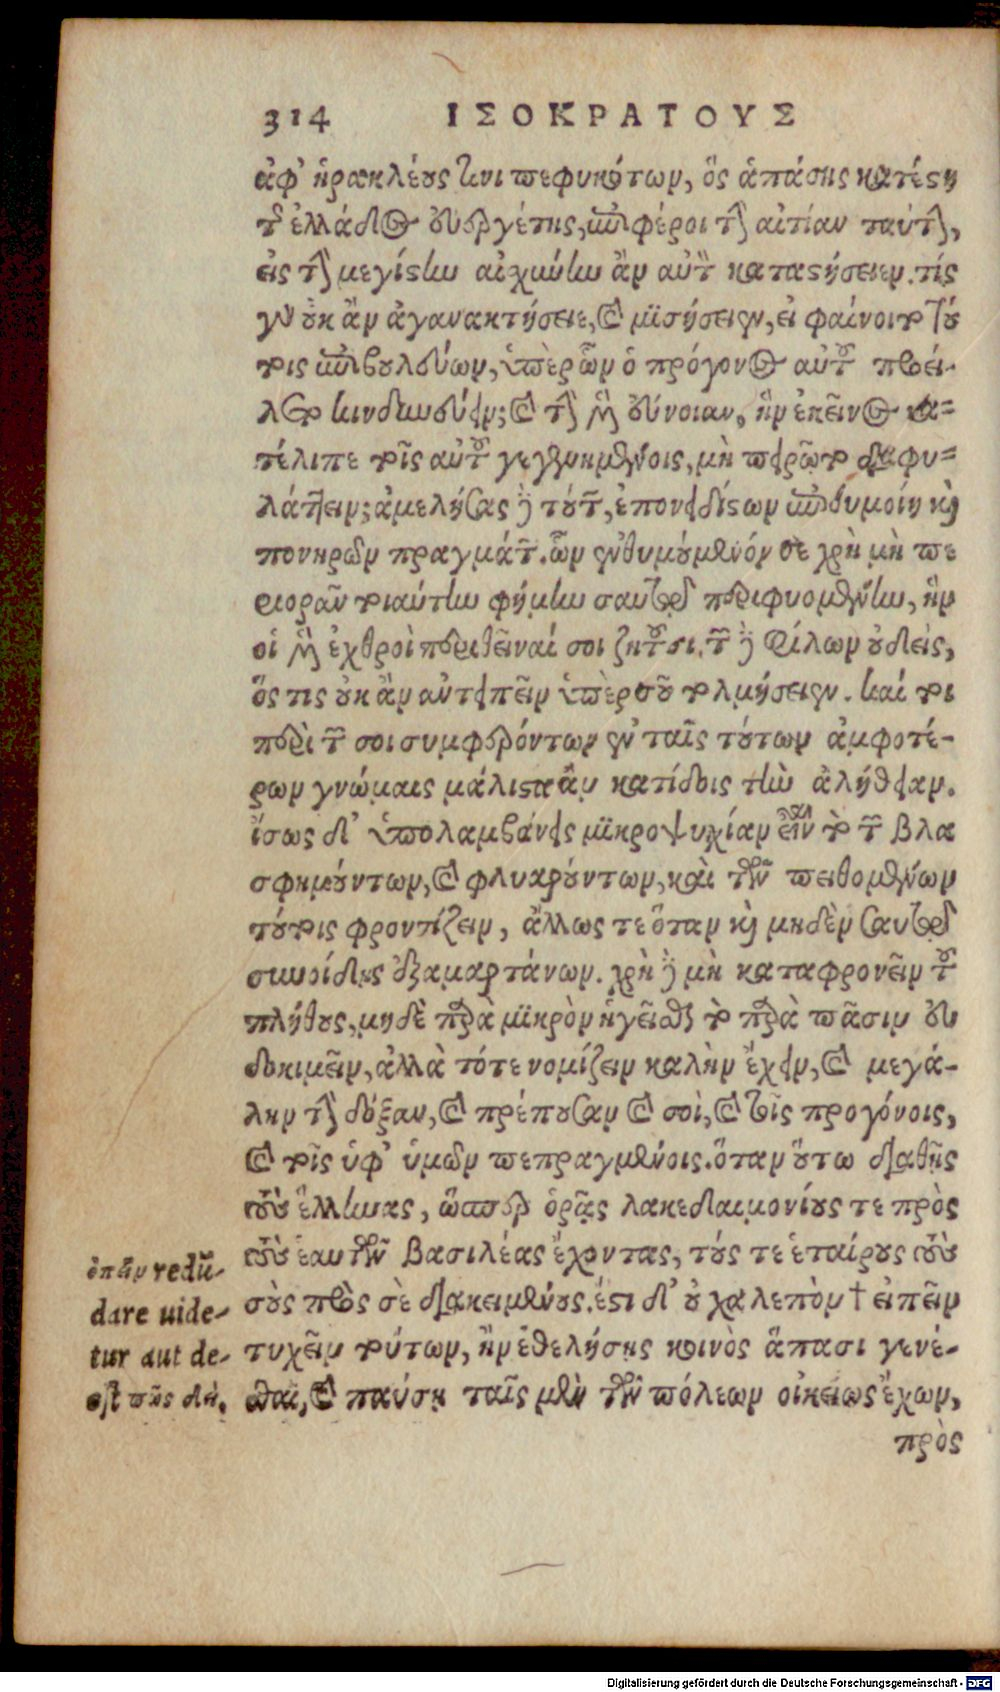 314 ΙΣΟΚΡΑΤΟΥΣ
ἀφ' ἡρακλέους τινὶ πεφυκότων, ὃς ἁπάσης κατέστη
τῆς ἑλλάδος εὐεργέτης, ἐπιφέροι τὴν αἰτίαν ταύτην,
εἰς τὴν μεγίστην αἰσχύνην ἂν αὐτὸν καταστήσειεν. τίς
γὰρ οὐκ ἂν ἀγανακτήσειε, καὶ μισήσειεν, εἰ φαίνοιτο τού
τοις ἐπιβουλεύων, ὑπὲρ ὧν ὁ πρόγονος αὐτοῦ προεί-
λετο κινδυνεύειν; καὶ τὴν μὲν εὔνοιαν, ἣν ἐκεῖνος κα-
τέλιπε τοῖς αὐτοῦ γεγενημένοις, μὴ πειρῷτο διαφυ-
λάττειν; ἀμελήσας δὲ τούτων, ἐπονειδίστων ἐπιθυμοίη καὶ
πονηρῶν πραγμάτων. ὧν ἐνθυμούμενόν σε χρὴ μὴ πε
ριορᾶν τοιαύτην φήμην σαυτῷ περιφυομένην, ἣν
οἱ μὲν ἐχθροὶ περιθεῖναί σοι ζητοῦσι. τῶν δὲ φίλων οὐδεὶς,
ὅς τις οὐκ ἂν ἀντειπεῖν ὑπὲρ σοῦ τολμήσειεν. καί τοι
περὶ τῶν σοι συμφερόντων ἐν ταῖς τούτων ἀμφοτέ-
ρων γνώμαις μάλιστα ἂν κατίδοις τὴν ἀλήθειαν.
ἴσως δ' ὑπολαμβάνεις μικροψυχίαν εἶναι τὸ τῶν βλα
σφημούντων, καὶ φλυαρούντων, καὶ τῶν πειθομένων
τούτοις φροντίζειν, ἄλλως τε ὅταν καὶ μηδὲν σαυτῷ
συνοίδης ἐξαμαρτάνων. χρὴ δὲ μὴ καταφρονεῖν τοῦ
πλήθους, μηδὲ παρὰ μικρὸν ἡγεῖσθαι τὸ παρὰ πᾶσιν εὐ
δοκιμεῖν, ἀλλὰ τότε νομίζειν καλὴν ἔχειν, καὶ μεγά-
λην τὴν δόξαν, καὶ πρέπουσαν καὶ σοὶ, καὶ τοῖς προγόνοις,
καὶ τοῖς ὑφ' ὑμῶν πεπραγμένοις. ὅταν οὕτω διαθῇς
τοὺς ἕλληνας, ὥσπερ ὁρᾷς λακεδαιμονίους τε πρὸς
τοὺς ἑαυτῶν βασιλέας ἔχοντας, τούς τε ἑταίρους τοὺς
σοὺς πρὸς σὲ διακειμένους. ἔστι δ' οὐ χαλεπὸν † εἰπεῖν
τυχεῖν τούτων, ἢν ἐθελήσῃς κοινὸς ἅπασι γενέ-
σθαι, καὶ παύσῃ ταῖς μὲν τῶν πόλεων οἰκείως ἔχων,
πρὸς
ἐπᾶν redū-
dare uide-
tur aut de-
est πῶς δὴ.
Digitalisierung gefördert durch die Deutsche Forschungsgemeinschaft - DFG